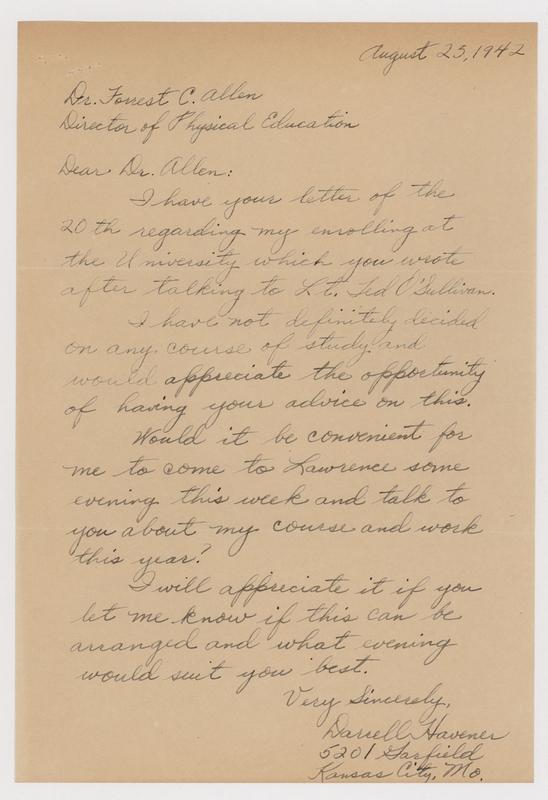 August 25, 1942
Dr. Forrest C. Allen
Director of Physical Education
Dear Dr. Allen:
I have your letter of the
20th regarding my enrolling at
the University which you wrote
after talking to Lt. Ted O'Sullivan.
I have not definitely decided
on any course of study and
would appreciate the opportunity
of having your advice on this.
Would it be convenient for
me to come to Lawrence some
evening this week and talk to
you about my course and work
this year?
I will appreciate it if you
let me know if this can be
arranged and what evening
would suit you best.
Very Sincerely,
Darrell Havener
5201 Garfield
Kansas City, Mo.